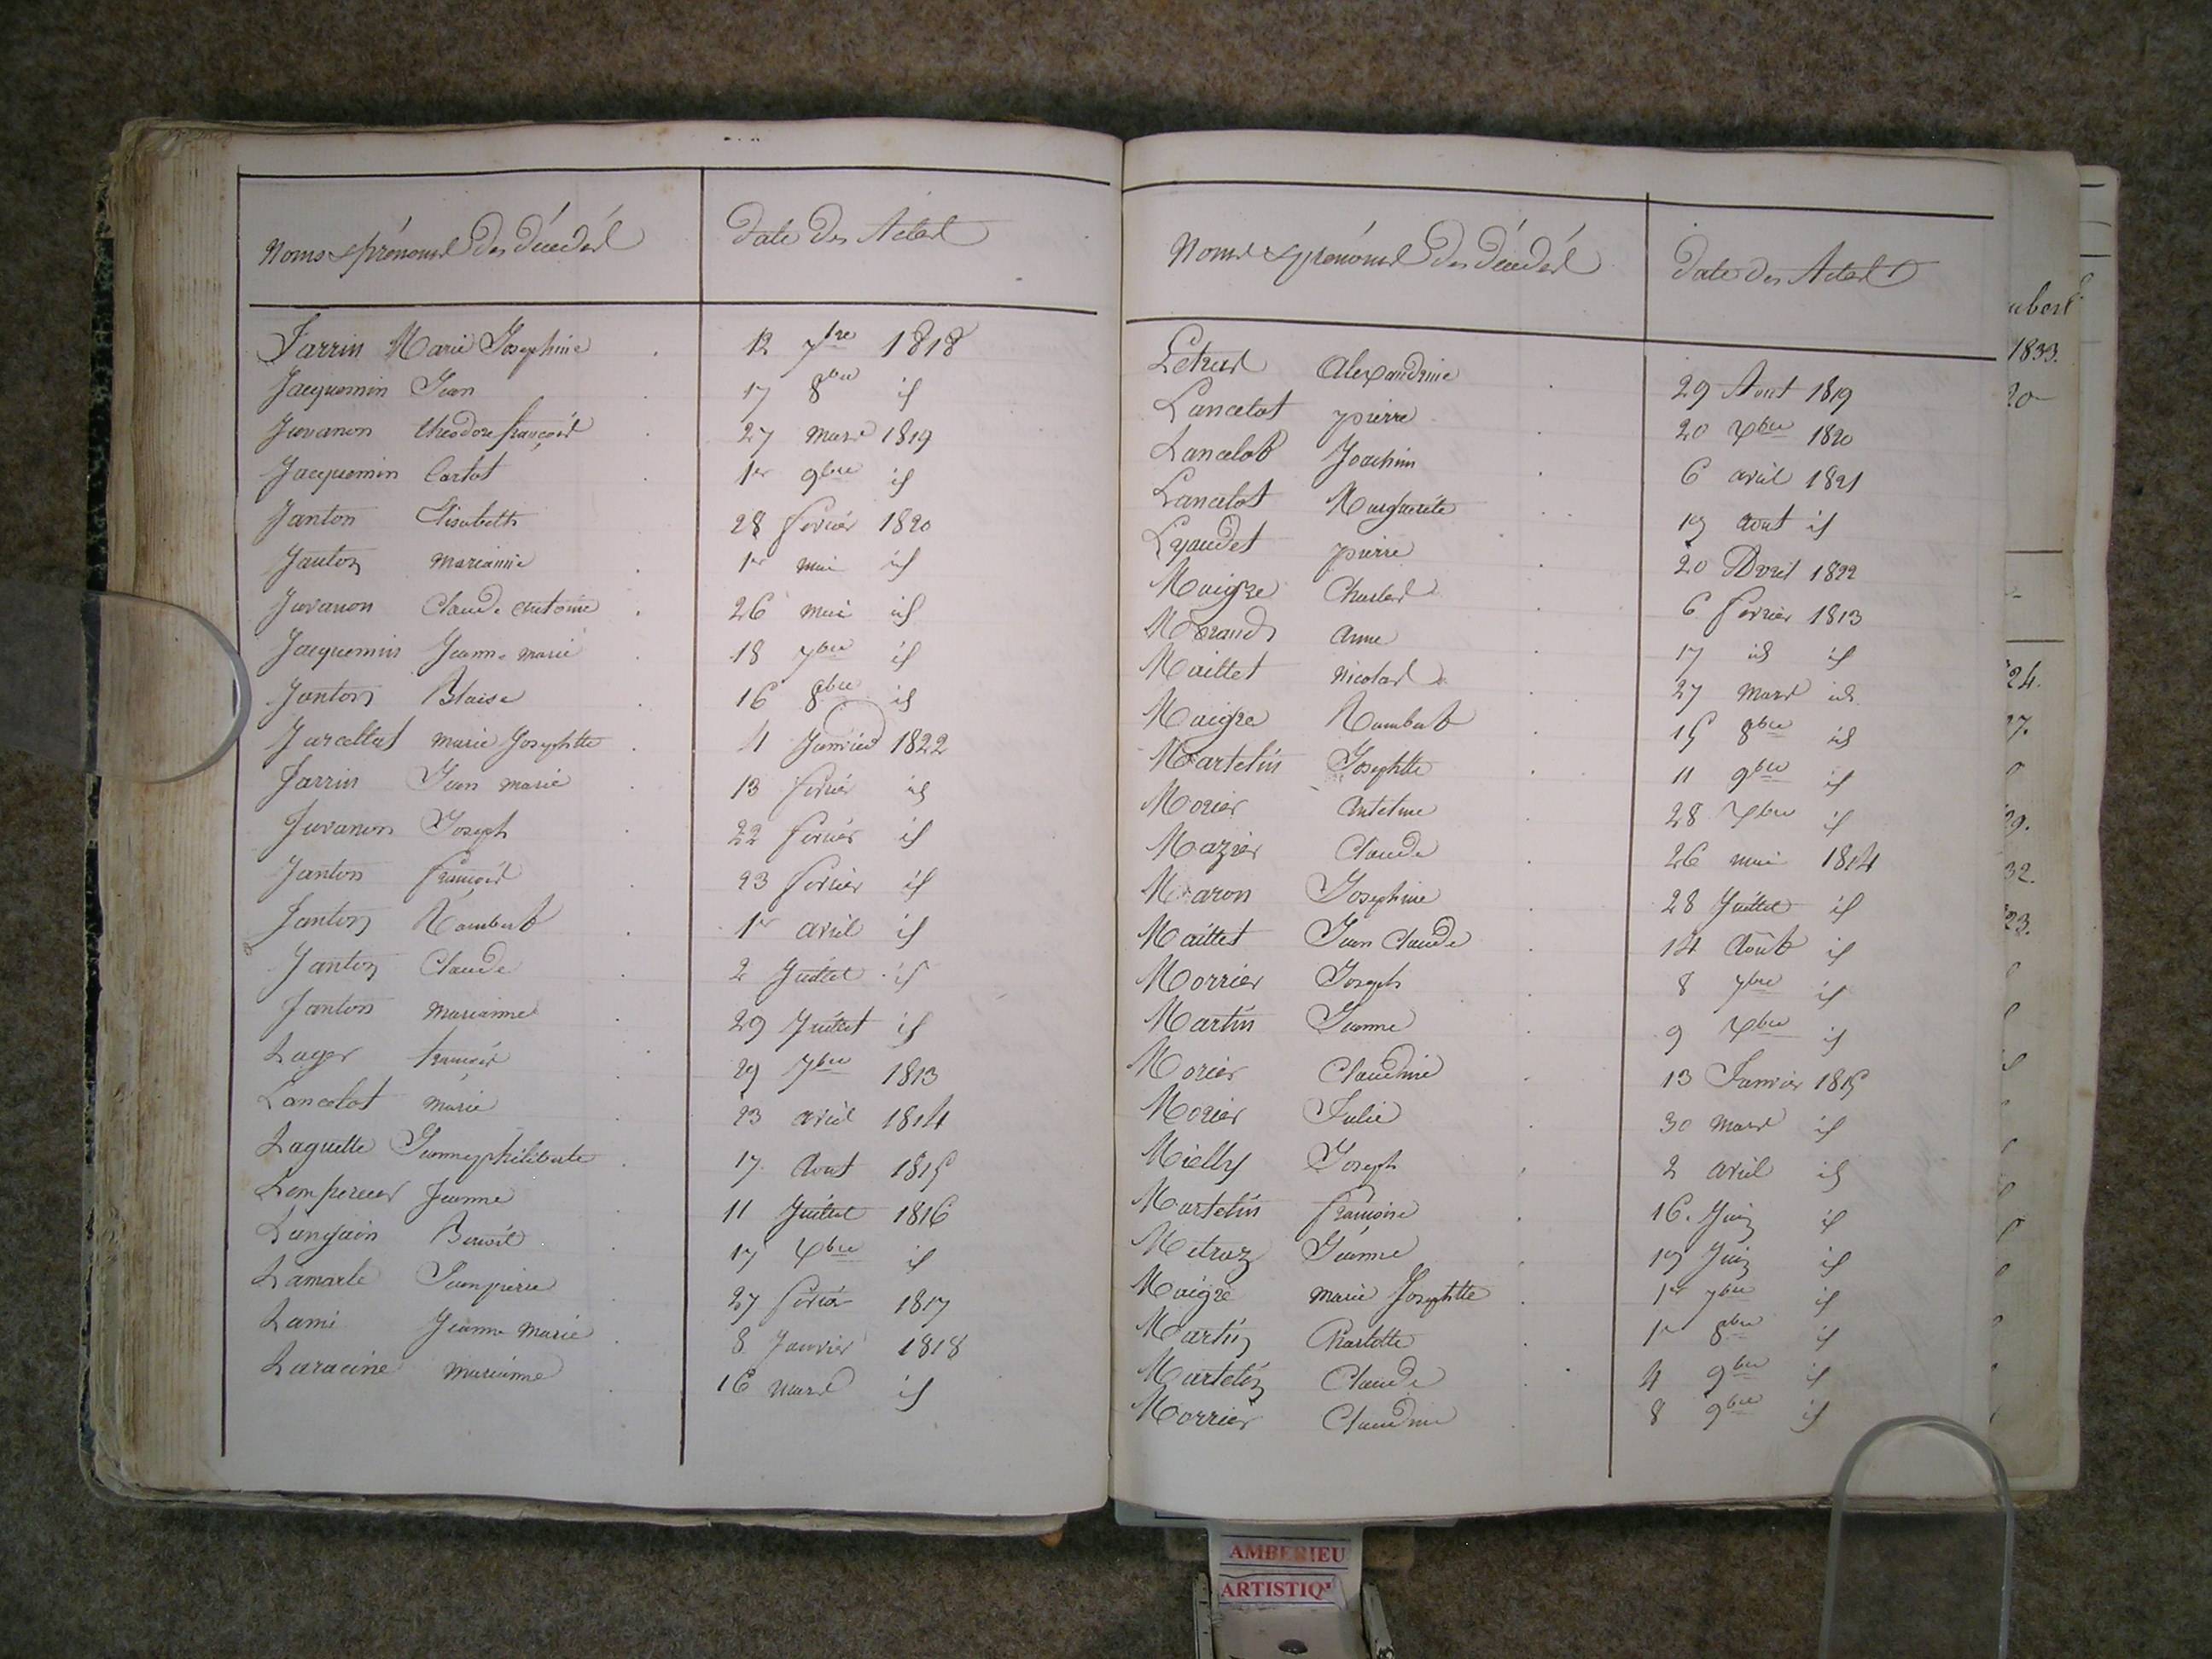 Noms & prénoms des décédés
Date des Actes
Jarrin Marie Josephine 12 7bre 1818
Jacquemin Jean 17 8bre id
Juvanon théodore françois 27 mars 1819
Jacquemin Cartot 1er 9bre id
Janton Elisabeth 28 fevrier 1820
Janton Marianne 1er mai id
Juvanon Claude Antoine 26 mai id
Jacquemin Jeanne Marie 18 7bre id
Janton Blaise 16 8bre id
Jarcellat Marie Josephtte 4 Janvier 1822
Jarrin Jean Marie 13 fevrier id
Juvanon Joseph 22 fevrier id
Janton françois 23 fevrier id
Janton Rambert 1er avril id
Janton Claude 2 Juillet id
Janton Marianne 29 Juillet id
Lager françois 29 7bre 1813
Lancelot Marie 23 avril 1814
Laguette Jeanne philiberte 17 Aout 1815
Lempereur Jeanne 11 Juillet 1816
Benoit 17 Xbre id
Lamarle Jean pierre 27 fevrier 1817
Lami Jeanne Marie 8 Janvier 1818
Laracine Marianne 16 mars id
Noms & prénoms des décédés
Date des Actes
Alexandrine 29 Aout 1819
Lancelot pierre 20 Xbre 1820
Lancelot Joachim 6 avril 1821
Lancelot Marguerite 19 Aout id
Lyaudet pierre 20 Avril 1822
Maigre Charles 6 fevrier 1813
Morand Anne 17 id id
Maillet Nicolas 27 Mars id
Maigre Rambert 15 8bre id
Martelin Josephtte 11 9bre id
Morier Antelme 28 Xbre id
Mazier Claude 26 mai 1814
Maron Josephine 28 Juillet id
Maillet Jean Claude 14 Août id
Morrier Joseph 8 7bre id
Martin Jeanne 9 Xbre id
Morier Claudine 13 Janvier 1815
Morier Julie 30 Mars id
Mielly Joseph 2 avril id
Martelin françoise 16 Juin id
Metraz Jeanne 19 Juin id
Maigre Marie Josephtte 1er 7bre id
Martin Charlotte 1er 8bre id
Martelin Claude 4 9bre id
Morrier Claudine 8 9bre id
1833.
20
24.
27.
29.
32.
23.
AMBERIEU
ARTISTIQ